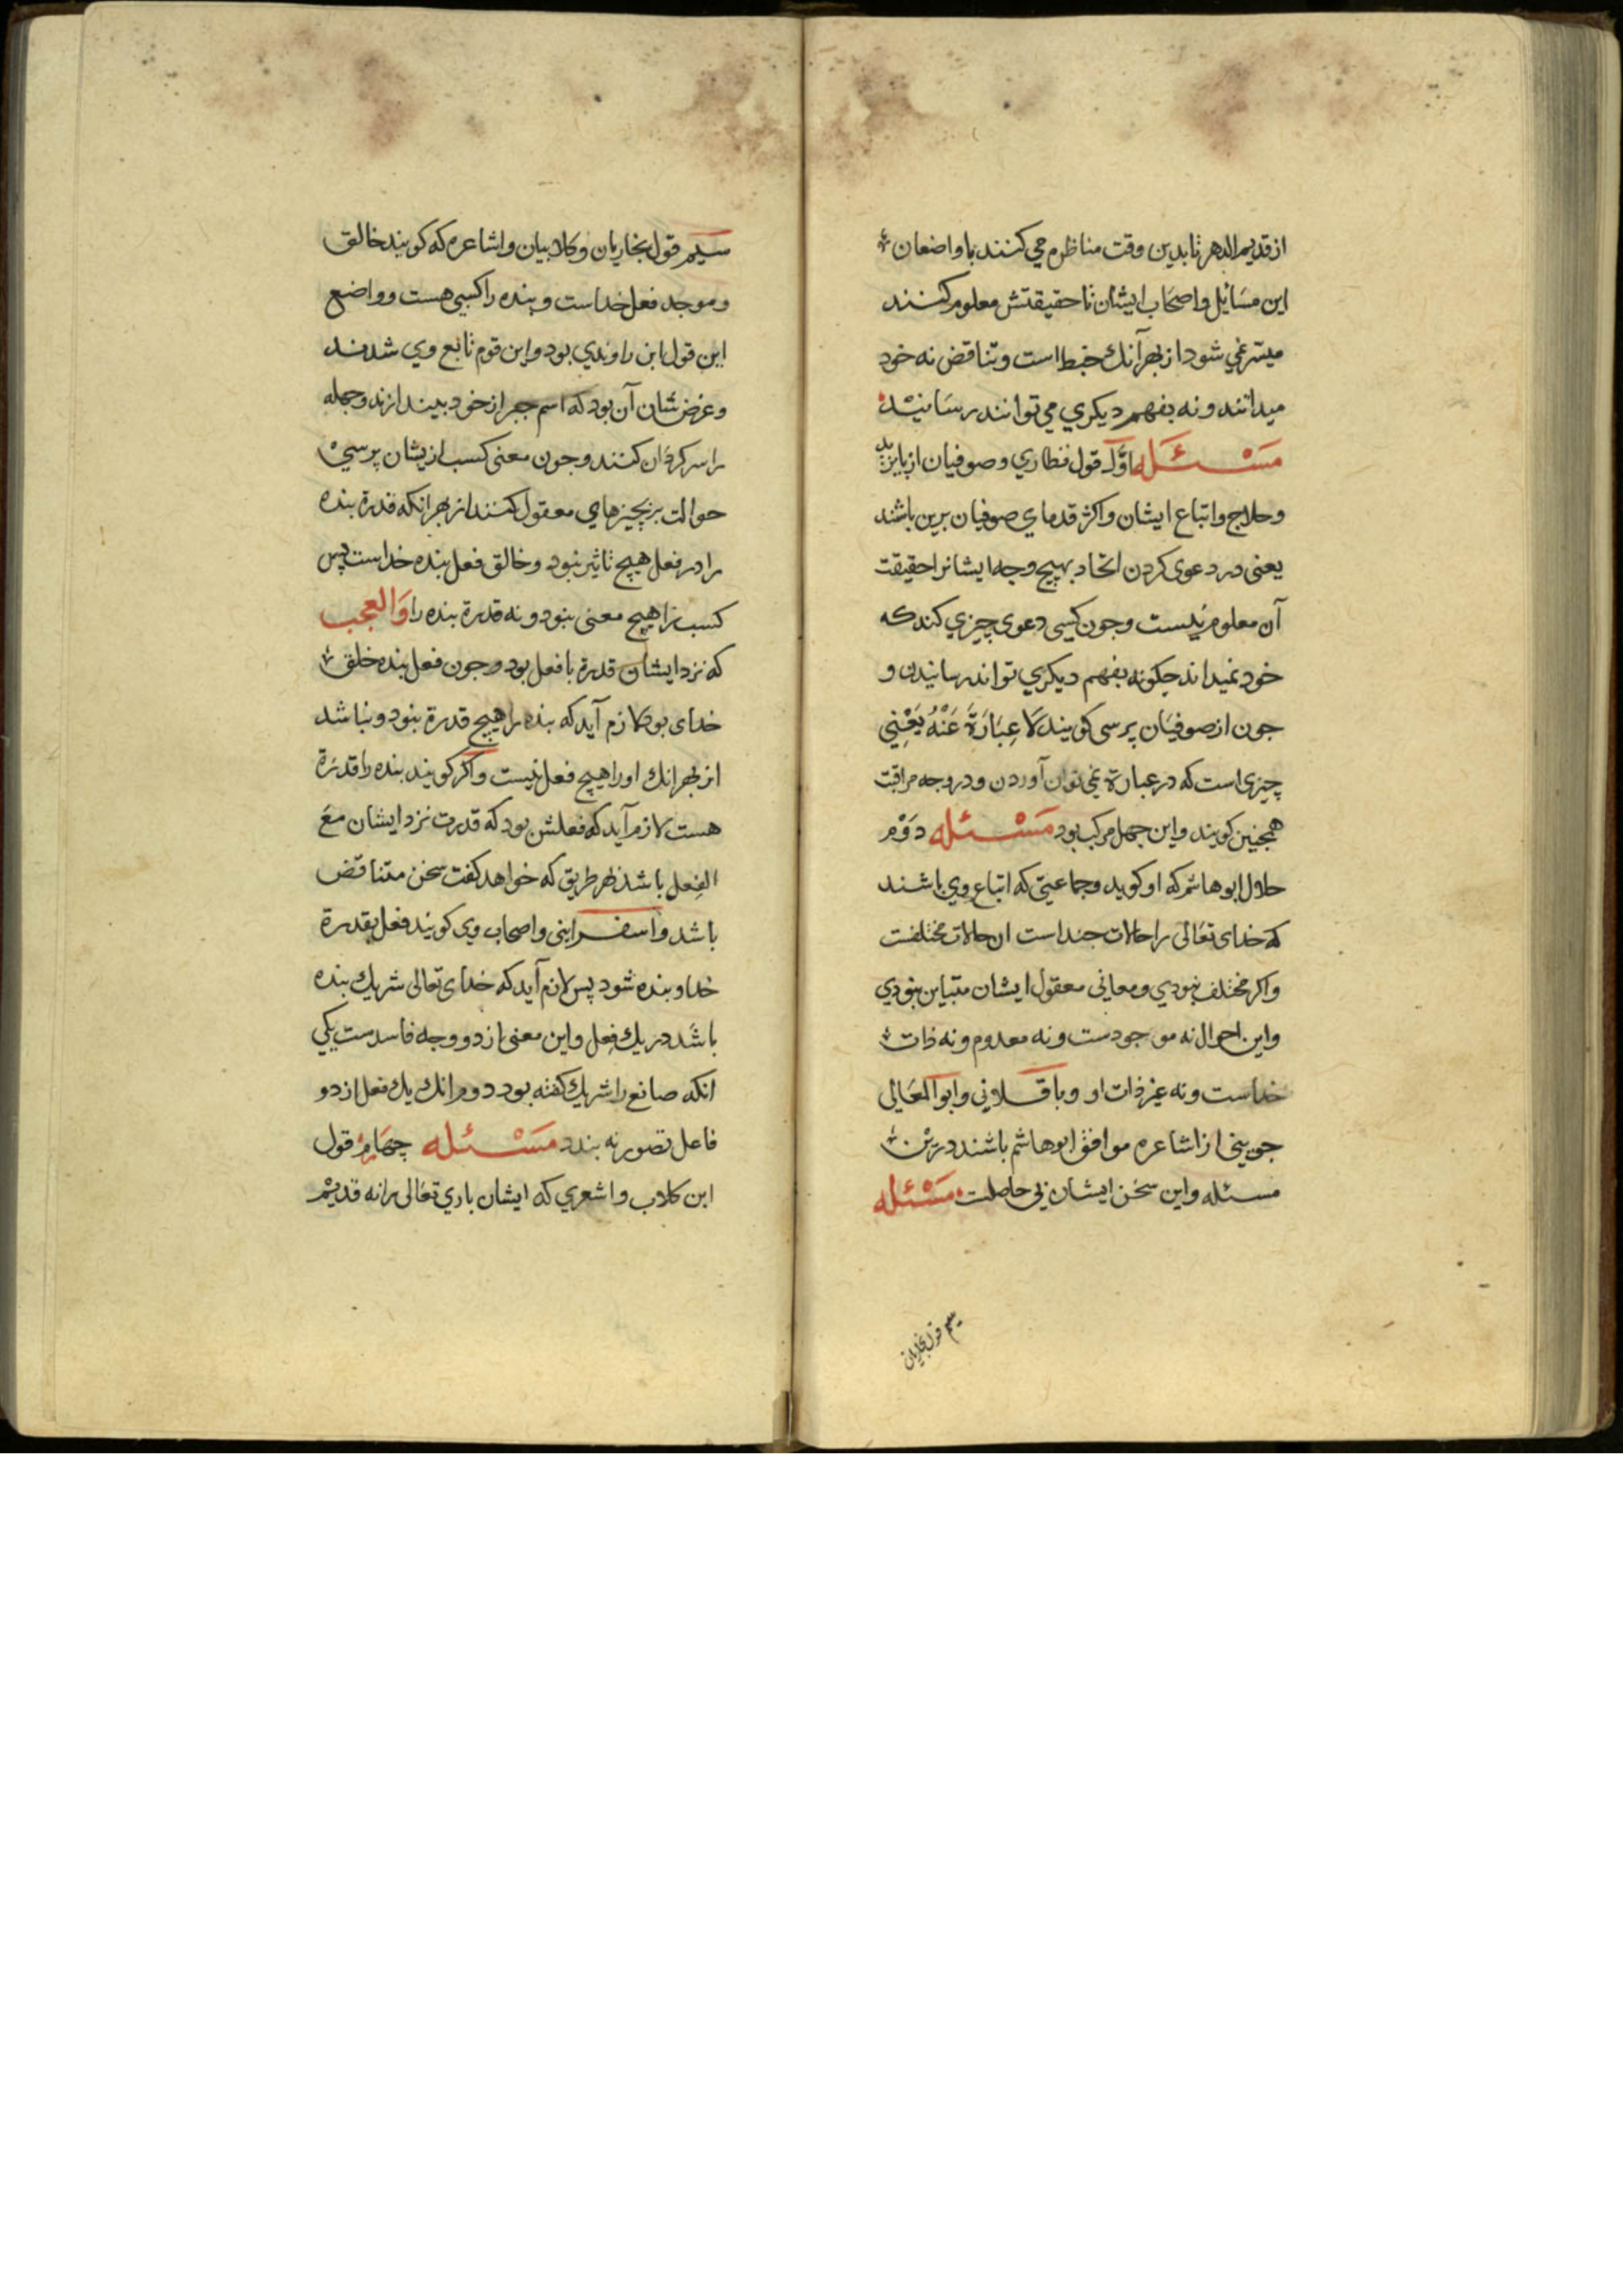 از قدیم الدهر تا بدین وقت مناظره می کنند با واضعان
این مسَائل و اصحَاب ایشان تا حقیقتش معلوم کنند
میسّر نمی شود از بهر آنك خبط است و تناقض نه خود
میدانند و نه بفهم دیکری می توانند رسَانید
مَسْئَله اوّل قول نطاری و صوفیان از بایزید
و حلاج و اتباع ایشان و اکثر قدمای صوفیان برین باشند
یعنی در دعوی کردن اتحاد بهیچ وجه ایشانرا حقیقت
آن معلوم نیست و جون کیسی دعوی چیزی کند که
خود نمیداند جکونه بفهم دیکری تواند رسانیدن و
جون از صوفیَان پرسی کویند لَا عِبَارَةَ عَنْهُ یَعْنِی
چیزی است که در عبارة نمی توان آوردن و در وجه مراقبت
همچنین کویند و این جهل مرکب بود مَسْئله دوّم
حلال ابوهاشم که او کوید و جماعیتی که اتباع وی باشند
که خدای تعَالی را حالات جند است ان حالات مختلفست
و اکر مختلف نبودی و معانی معقول ایشان متباین نبودی
و این احوال نه موجودست و نه معدوم و نه ذات
خداست و نه غیر ذات او و باقلانی و ابو المعَالی
جوینی از اشاعره موافق ابوهاشم باشند درین
مسئله و این سخن ایشان بی حاصلت مَسْئله
سیم قول نجاریان
سیم قول نجاریان و کلابیان و اشاعره که کویند خالق
و موجد فعل خداست و بنده را کسبی هست و واضع
این قول ابن راوندی بود و این قوم تابع وی شدند
و غرض شان آن بود که اسم جبر از خود بیندازند و جمله
را سرکردان کنند و جون معنی کسب ازیشان پرسی
حوالت بر بچیزهای معقول کنند از بهر انکه قدرة بنده
را در فعل هیچ تاثیر نبود و خالق فعل بنده خداست پس
کسب را هیچ معنی نبود و نه قدرة بنده را وَالعجب
که نزد ایشان قدرة با فعل بود و جون فعل بنده خلق
خدای بود لازم آید که بنده را هیچ قدرة نبود و نباشد
از بهر انك او را هیچ فعل نیست و اکر کویند بنده را قدرَة
هست لازم آید که فعلش بود که قدرت نزد ایشان معَ
الفِعل باشد بهر طریق که خواهد کفت سخن متناقض
باشد و اسفراینی و اصحاب وی کویند فعل بقدرة
خدا و بنده شود پس لازم آید که خدای تعالی شریك بنده
باشد در یك فِعل و این معنی از دو وجه فاسدست یکی
انکه صانع را شریك کفته بود دوم انك یك فعل از دو
فاعل تصور نه بندد مَسْئله چهارم قول
ابن کلاب و اشعری که ایشان باری تعَالی را نه قدیم